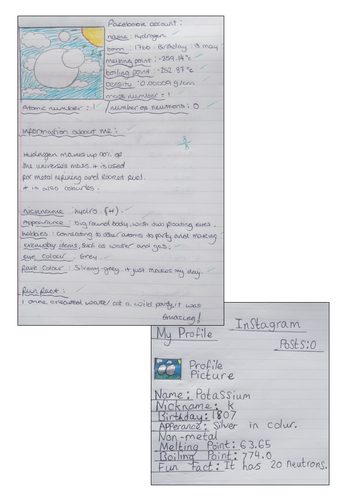 Facebook account:
name: Hydrogen
born: 1766. Birthday: 13 may
melting point: -259.14°c
boiling point: -252.87°c
Density: 0.00009 g/cm
mass number = 1
Atomic number: 1
number of neutrons: 0
Information about me:
Hydrogen makes up 90% of
the universes mass. It is used
for metal refining and Rocket fuel.
It is also colourless.
Nickname: hydro (H).
Appearance: Big round body, with two floating eyes.
hobbies: Connecting to other atoms to party and making
everyday items, such as water and gas.
eye colour: Grey.
Fave Colour: Silvery-grey. It just makes my day.
Fun Fact:
I once created water at a wild party, it was
amazing!
Instagram
My Profile
Posts:0
Profile
Picture
Name: Potassium
Nickname: K
Birthday: 1807
Apperance: Silver in colur.
Non-metal
Melting Point: 63.65
Boiling Point: 774.0
Fun Fact: It has 20 neutrons.